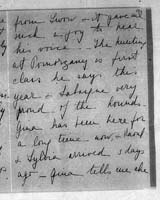 from Lwow – it gave me
such a joy to hear
his voice. The hunting
at Pomorzany is first
class he says this
year & Labargne very
proud of the hounds.
Gina has been here for
a long time now, &
& Sylvia arrived 3 days
ago – Gina tells me she